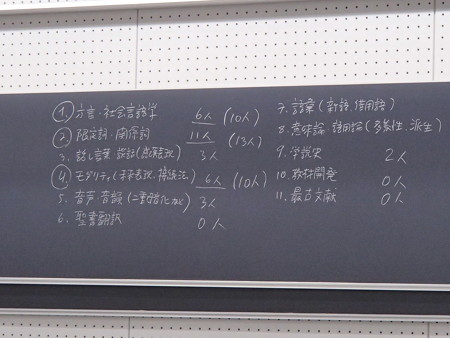 ① 方言・社会言語学 6人 (10人)
② 限定詞・関係詞 11人 (13人)
3. 話し言葉・談話 3人
④ モダリティ(未来表現、接続法) 6人 (10人)
5. 音声・音韻(二重母音化など) 3人
6. 聖書翻訳 0人
7. 語彙(新語、借用語)
8. 意味論・語用論(多義性、派生)
9. 学説史 2人
10. 教材開発 0人
11. 最古文献 0人